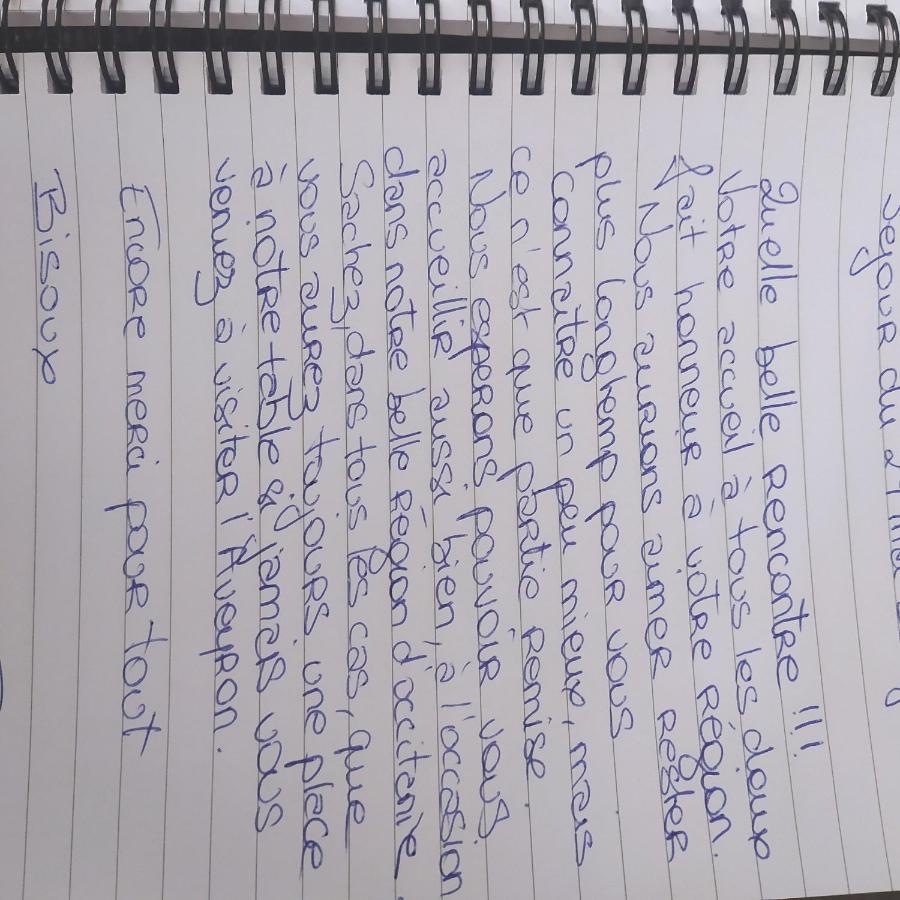 séjour du 21 mai
Quelle belle rencontre !!!
Votre accueil à tous les deux
fait honneur à vôtre région.
Nous aurions aimer rester
plus longtemp pour vous
connaitre un peu mieux, mais
ce n'est que partie remise.
Nous esperons pouvoir vous
accueillir aussi bien, à l'occasion
dans nôtre belle région d'occitanie.
Sachez, dans tous les cas, que
vous aurez toujours une place
à nôtre table si jamais vous
venez à visiter l'Aveyron.
Encore merci pour tout
Bisoux